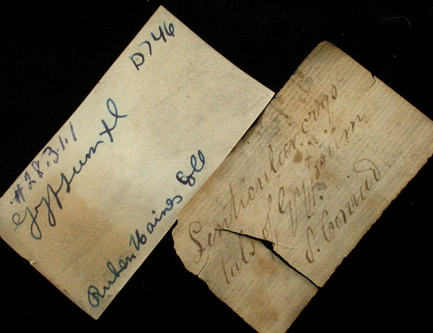 D746
#28.3.1.1
Gypsum xl
Ruben Haines Coll
Lenticular crys-
tals of Gypsum
S. Conrad.